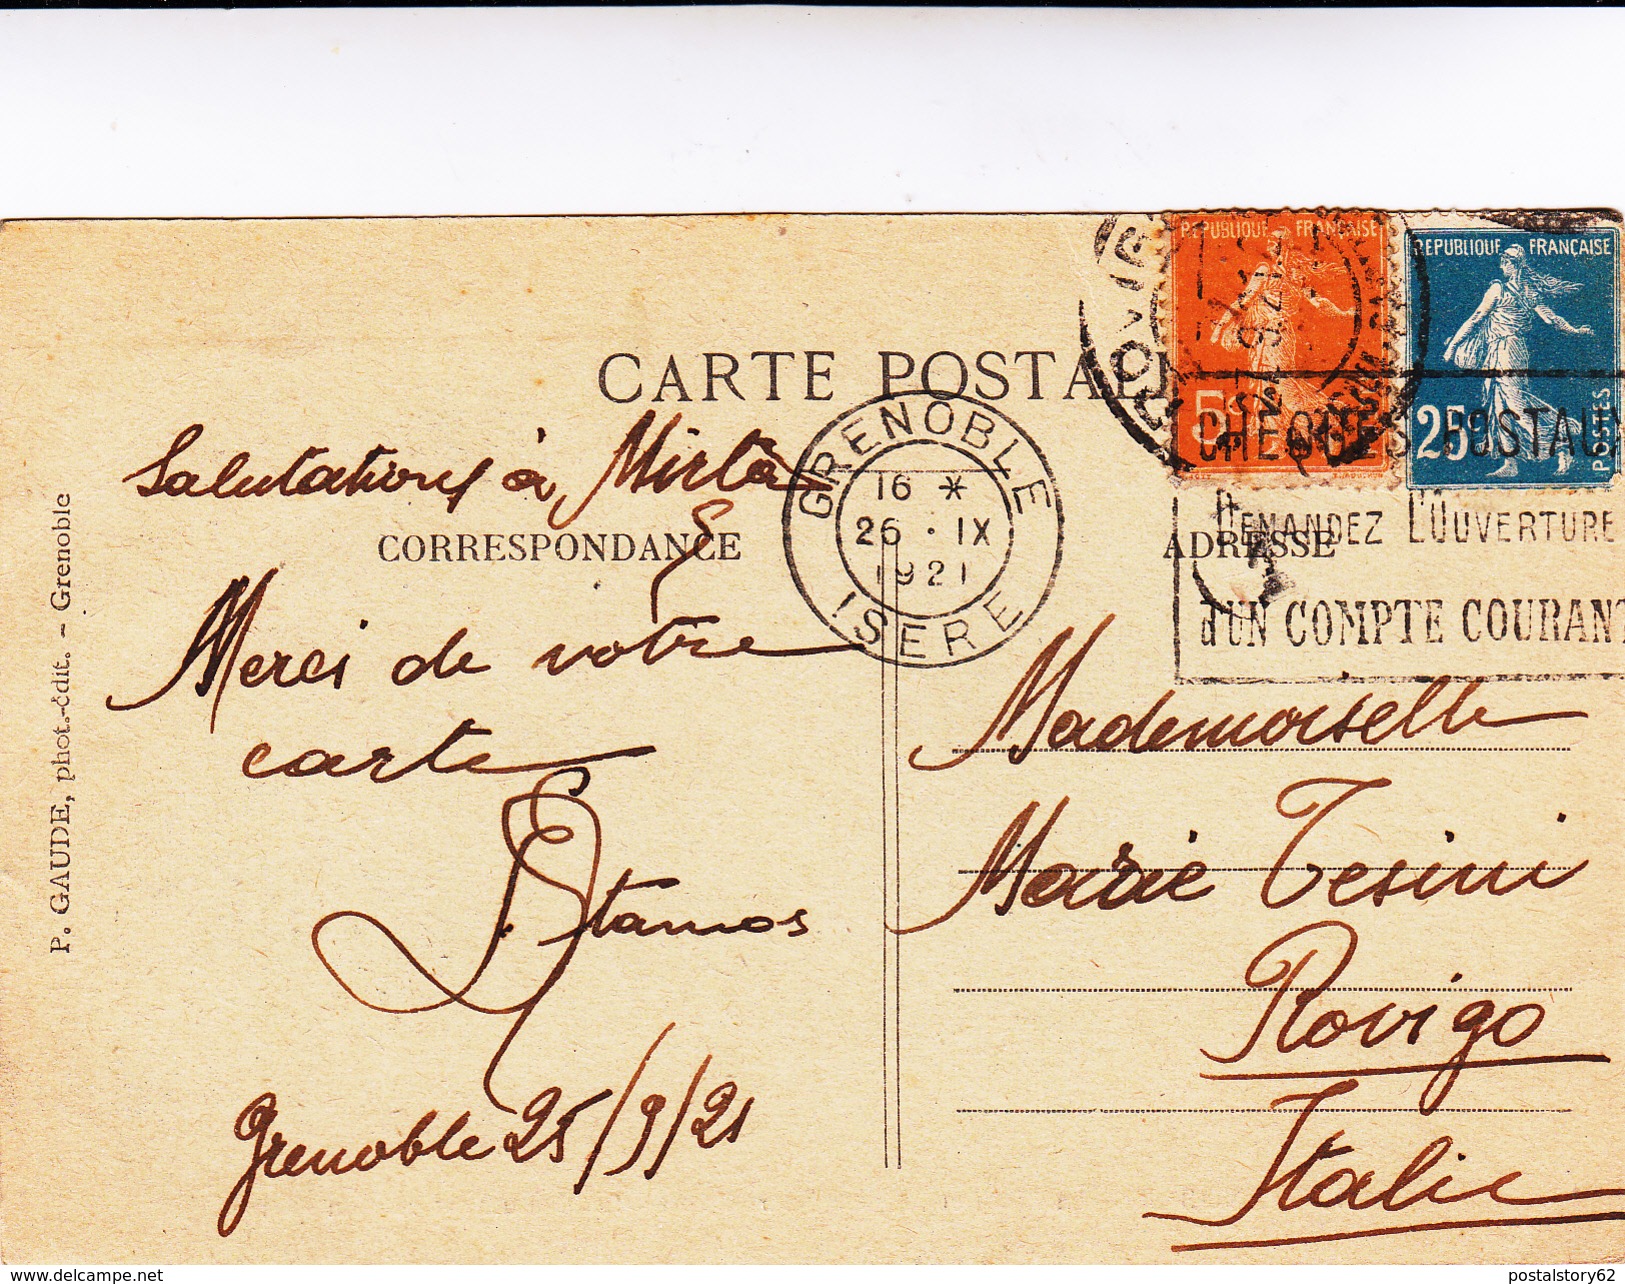 CARTE POSTALE
Salutations à Mirta
CORRESPONDANCE
Merci de votre
carte
Stamos
Grenoble 25/9/21
P. GAUDE, phot.-édit. - Grenoble
GRENOBLE
16 *
26 · IX
1921
ISERE
REPUBLIQUE FRANÇAISE
5c
REPUBLIQUE FRANÇAISE
25c
POSTES
ROVIGO
CHEQUES POSTAUX
DEMANDEZ L'OUVERTURE
d'UN COMPTE COURANT
ADRESSE
Mademoiselle
Marie Tesini
Rovigo
Italie
postalstory62